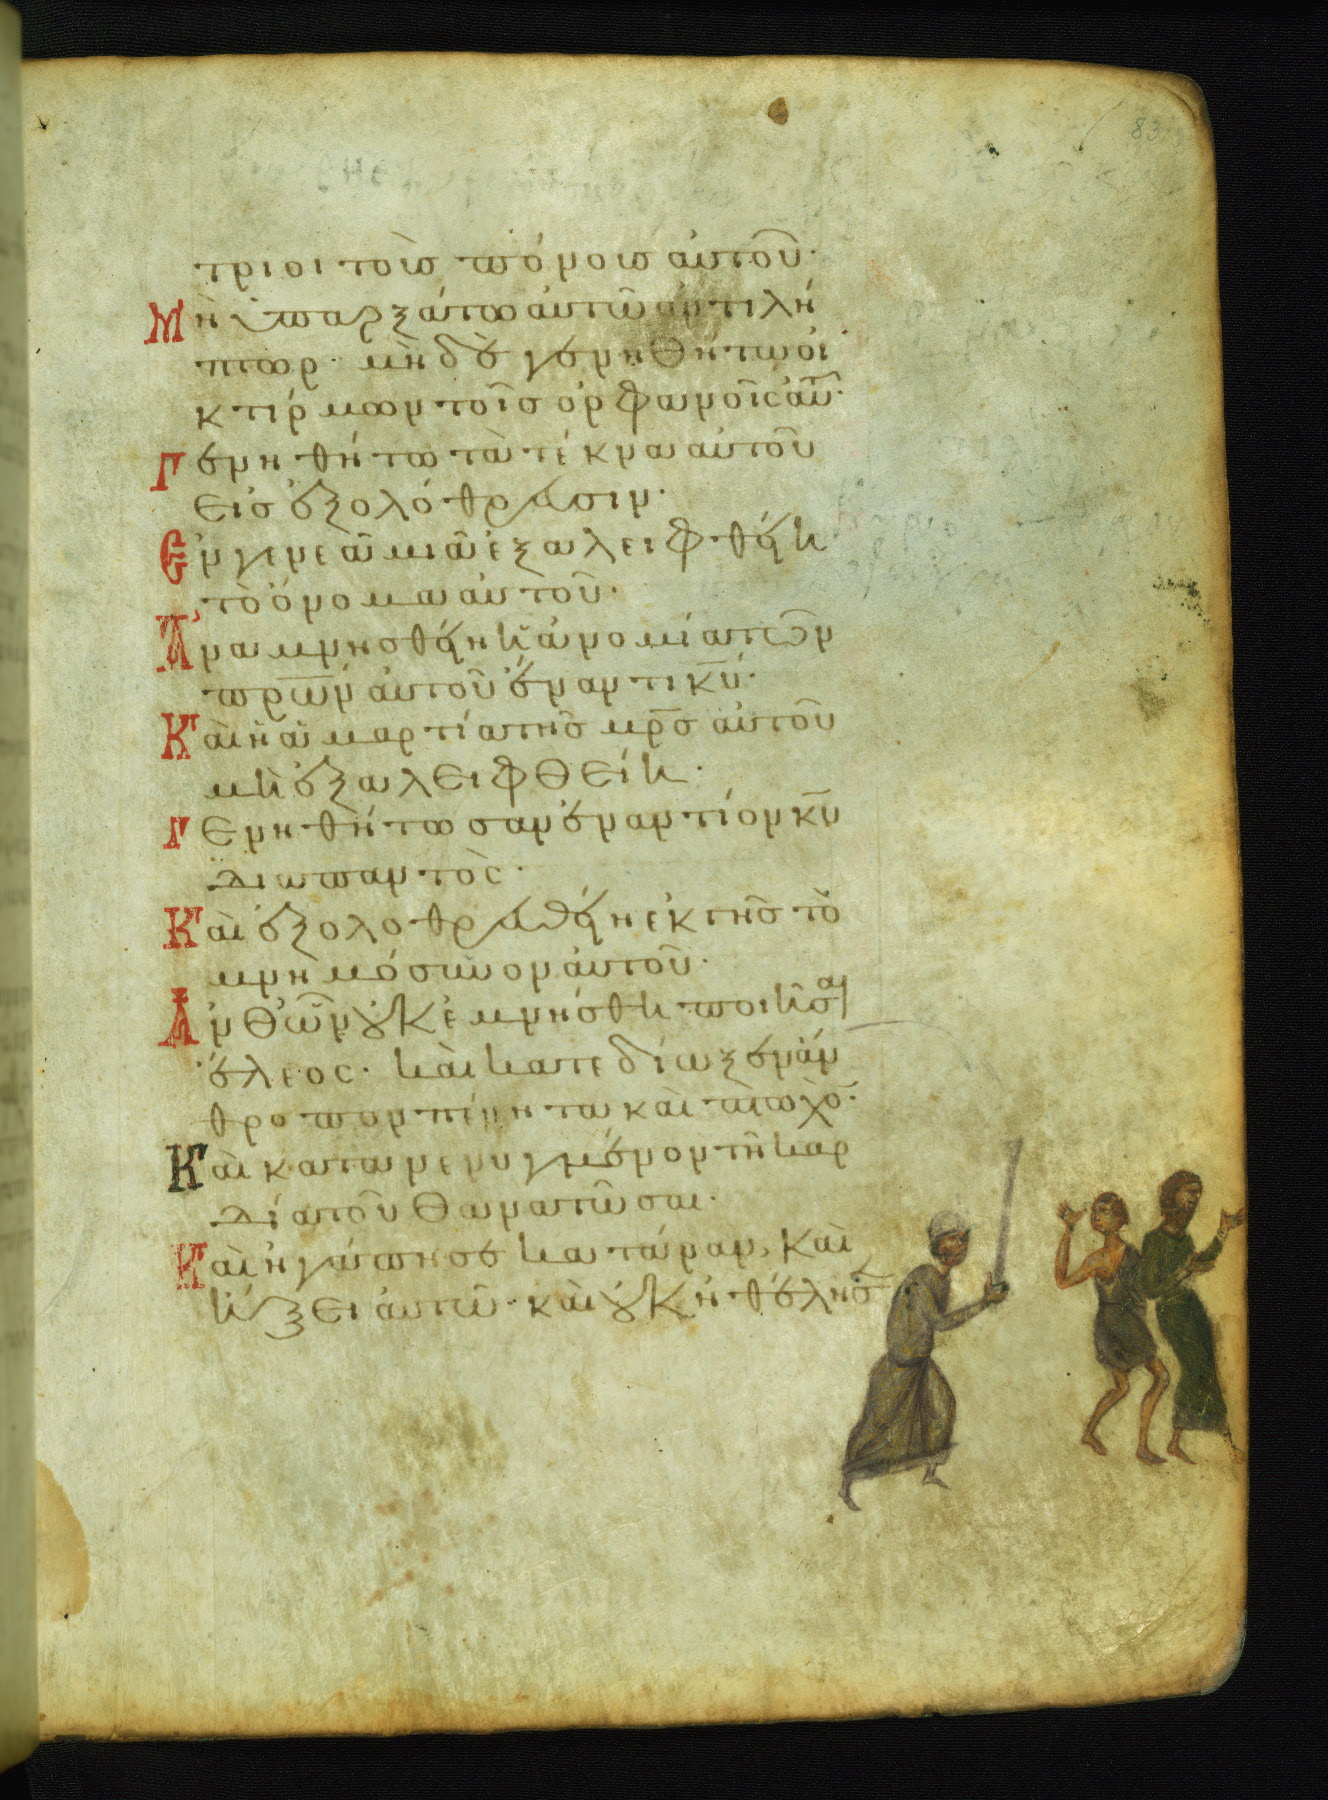 83
τριοι τοὺσ πόνουσ αὐτοῦ·
Μὴ ὑπαρξάτω αὐτῶ ἀντιλή
πτωρ· μὴδὲ γενηθήτω οἰ
κτίρμων τοῖσ ὀρφανοῖς αὐτοῦ·
Γενηθήτω τὰ τέκνα αὐτοῦ
εἰσ ἐξολόθρευσιν·
Ἐν γενεᾶ μιᾶ ἐξαλειφθείη
τὸ ὄνομα αὐτοῦ·
Ἀναμνησθείη ἡ ἀνομία τῶν
πρων αὐτοῦ ἔναντι κυ·
Καὶ ἡ ἁμαρτία τῆσ μρσ αὐτοῦ
μὴ ἐξαλειφθείη·
Γενηθήτωσαν ἐναντίον κυ
διαπαντὸς·
Καὶ ἐξολοθρευθείη ἐκ γῆσ τὸ
μνημόσυνον αὐτοῦ·
Ἀνθῶν οὐκ ἐμνήσθη ποιῆσαι
ἔλεος· καὶ κατεδίωξεν ἄν
θροπον πένητα καὶ πτωχὸν·
Καὶ κατανενυγμένον τῆ καρ
δία τοῦ θανατῶσαι·
Καὶ ἠγάπησε κατάραν, καὶ
ἥξει αὐτῶ· καὶ οὐκ ἠθέλησεν